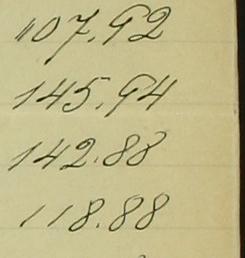 "07.92
145.94
142.88
118.88